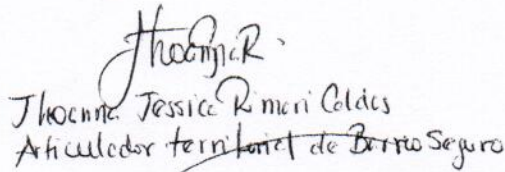 JhoannaR.
Jhoanna Jessica Rimari Caldas
Articulador territorial de Barrio Seguro